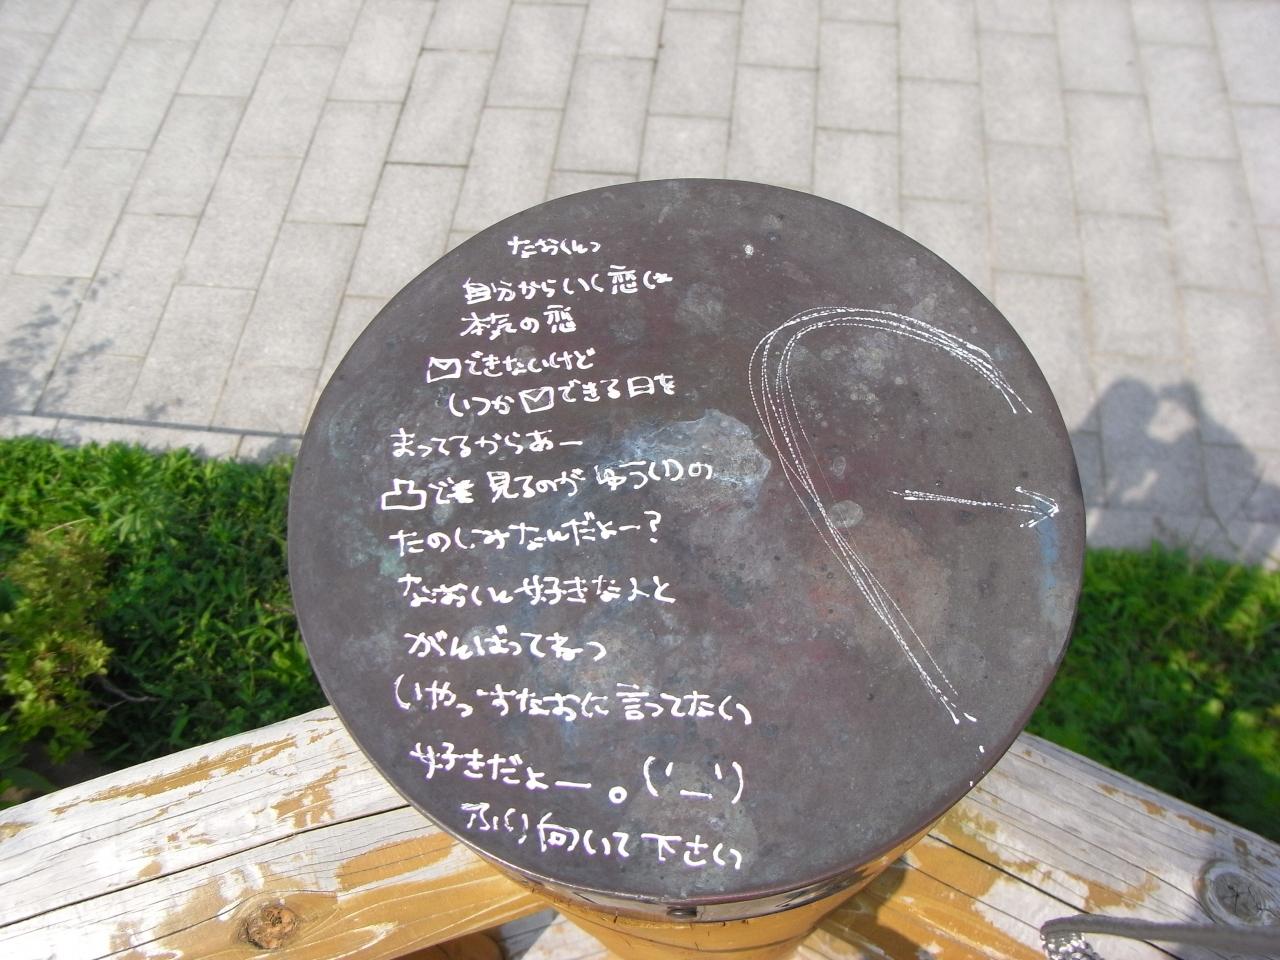 なおくんっ
自分からいく恋は
本気の恋
できないけど
いつかできる日を
まってるからあー
凸でも見るのがゆういつの
たのしみなんだよー?
なおくん好きな人と
がんばってねっ
いやっすなおに言ってたくっ
好きだよー。('_')
ふり向いて下さい